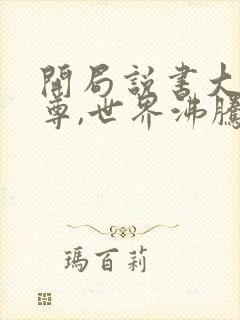 開局說書大
尊,世界沸騰
瑪百莉